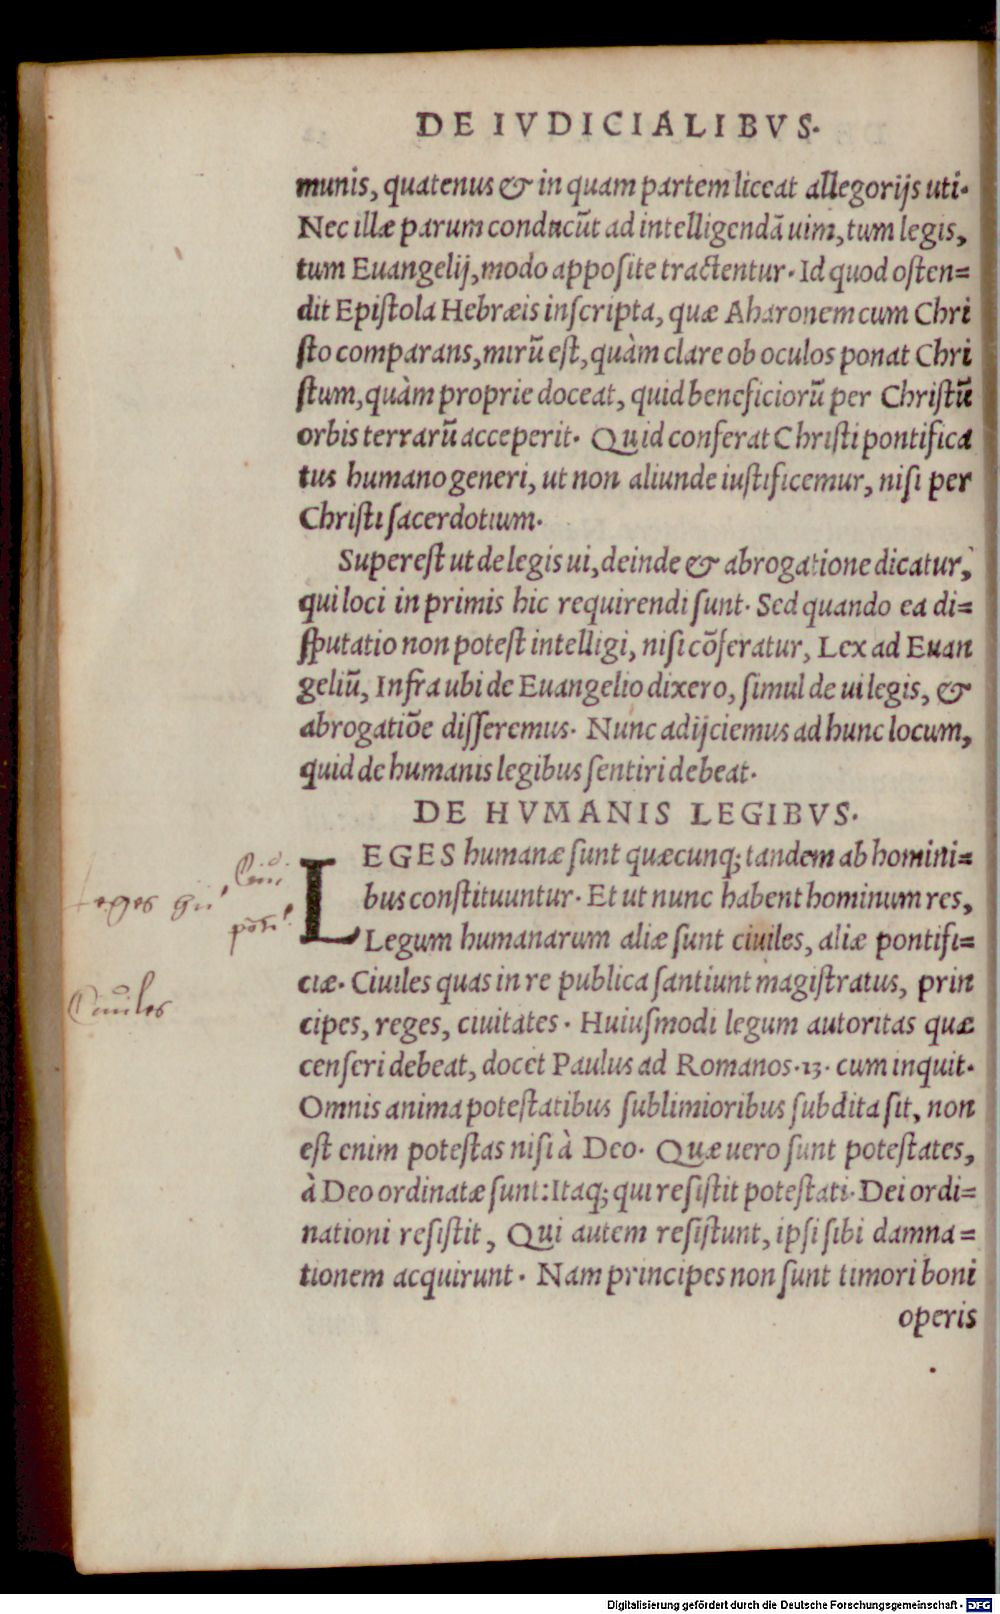 DE IVDICIALIBVS.
munis, quatenus & in quam partem liceat allegorijs uti.
Nec illæ parum conducũt ad intelligendã uim, tum legis,
tum Euangelij, modo apposite tractentur. Id quod osten=
dit Epistola Hebræis inscripta, quæ Aharonem cum Chri
sto comparans, mirũ est, quàm clare ob oculos ponat Chri
stum, quàm proprie doceat, quid beneficiorũ per Christũ
orbis terrarũ acceperit. Quid conferat Christi pontifica
tus humano generi, ut non aliunde iustificemur, nisi per
Christi sacerdotium.
Superest ut de legis ui, deinde & abrogatione dicatur,
qui loci in primis hic requirendi sunt. Sed quando ea di=
sputatio non potest intelligi, nisi cõferatur, Lex ad Euan
geliũ, Infra ubi de Euangelio dixero, simul de ui legis, &
abrogatiõe disseremus. Nunc adijciemus ad hunc locum,
quid de humanis legibus sentiri debeat.
DE HVMANIS LEGIBVS.
LEGES humanæ sunt quæcunq; tandem ab homini=
bus constituuntur. Et ut nunc habent hominum res,
Legum humanarum aliæ sunt ciuiles, aliæ pontifi=
ciæ. Ciuiles quas in re publica santiunt magistratus, prin
cipes, reges, ciuitates. Huiusmodi legum autoritas quæ
censeri debeat, docet Paulus ad Romanos.13. cum inquit.
Omnis anima potestatibus sublimioribus subdita sit, non
est enim potestas nisi à Deo. Quæ uero sunt potestates,
à Deo ordinatæ sunt: Itaq; qui resistit potestati. Dei ordi=
nationi resistit, Qui autem resistunt, ipsi sibi damna=
tionem acquirunt. Nam principes non sunt timori boni
operis
Leges
Ciuiles
Digitalisierung gefördert durch die Deutsche Forschungsgemeinschaft - DFG